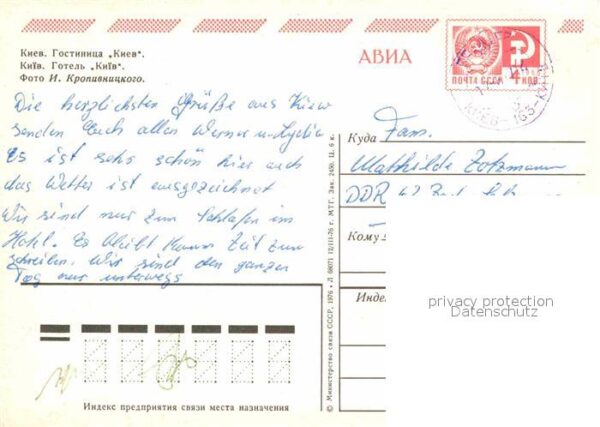 Киев. Гостиница „Киев“.
Київ. Готель „Київ“.
Фото И. Кропивницкого.
АВИА
ПОЧТА СССР 4 КОП
КИЕВ-103
Die herzlichsten Grüße aus Kiew
senden Euch allen Werner u. Lydia
Es ist sehr schön hier auch
das Wetter ist ausgezeichnet
Wir sind nur zum Schlafen im
Hotel. Es bleibt kaum Zeit zum
schreiben. Wir sind den ganzen
Tag nur unterwegs
Куда Fam.
Mathilde Zotzmann
DDR
Кому
Индек
privacy protection
Datenschutz
© Министерство связи СССР, 1976 • Л 68071 12/III-76 г. МТГ. Зак. 2450. Ц. 6 к.
Индекс предприятия связи места назначения